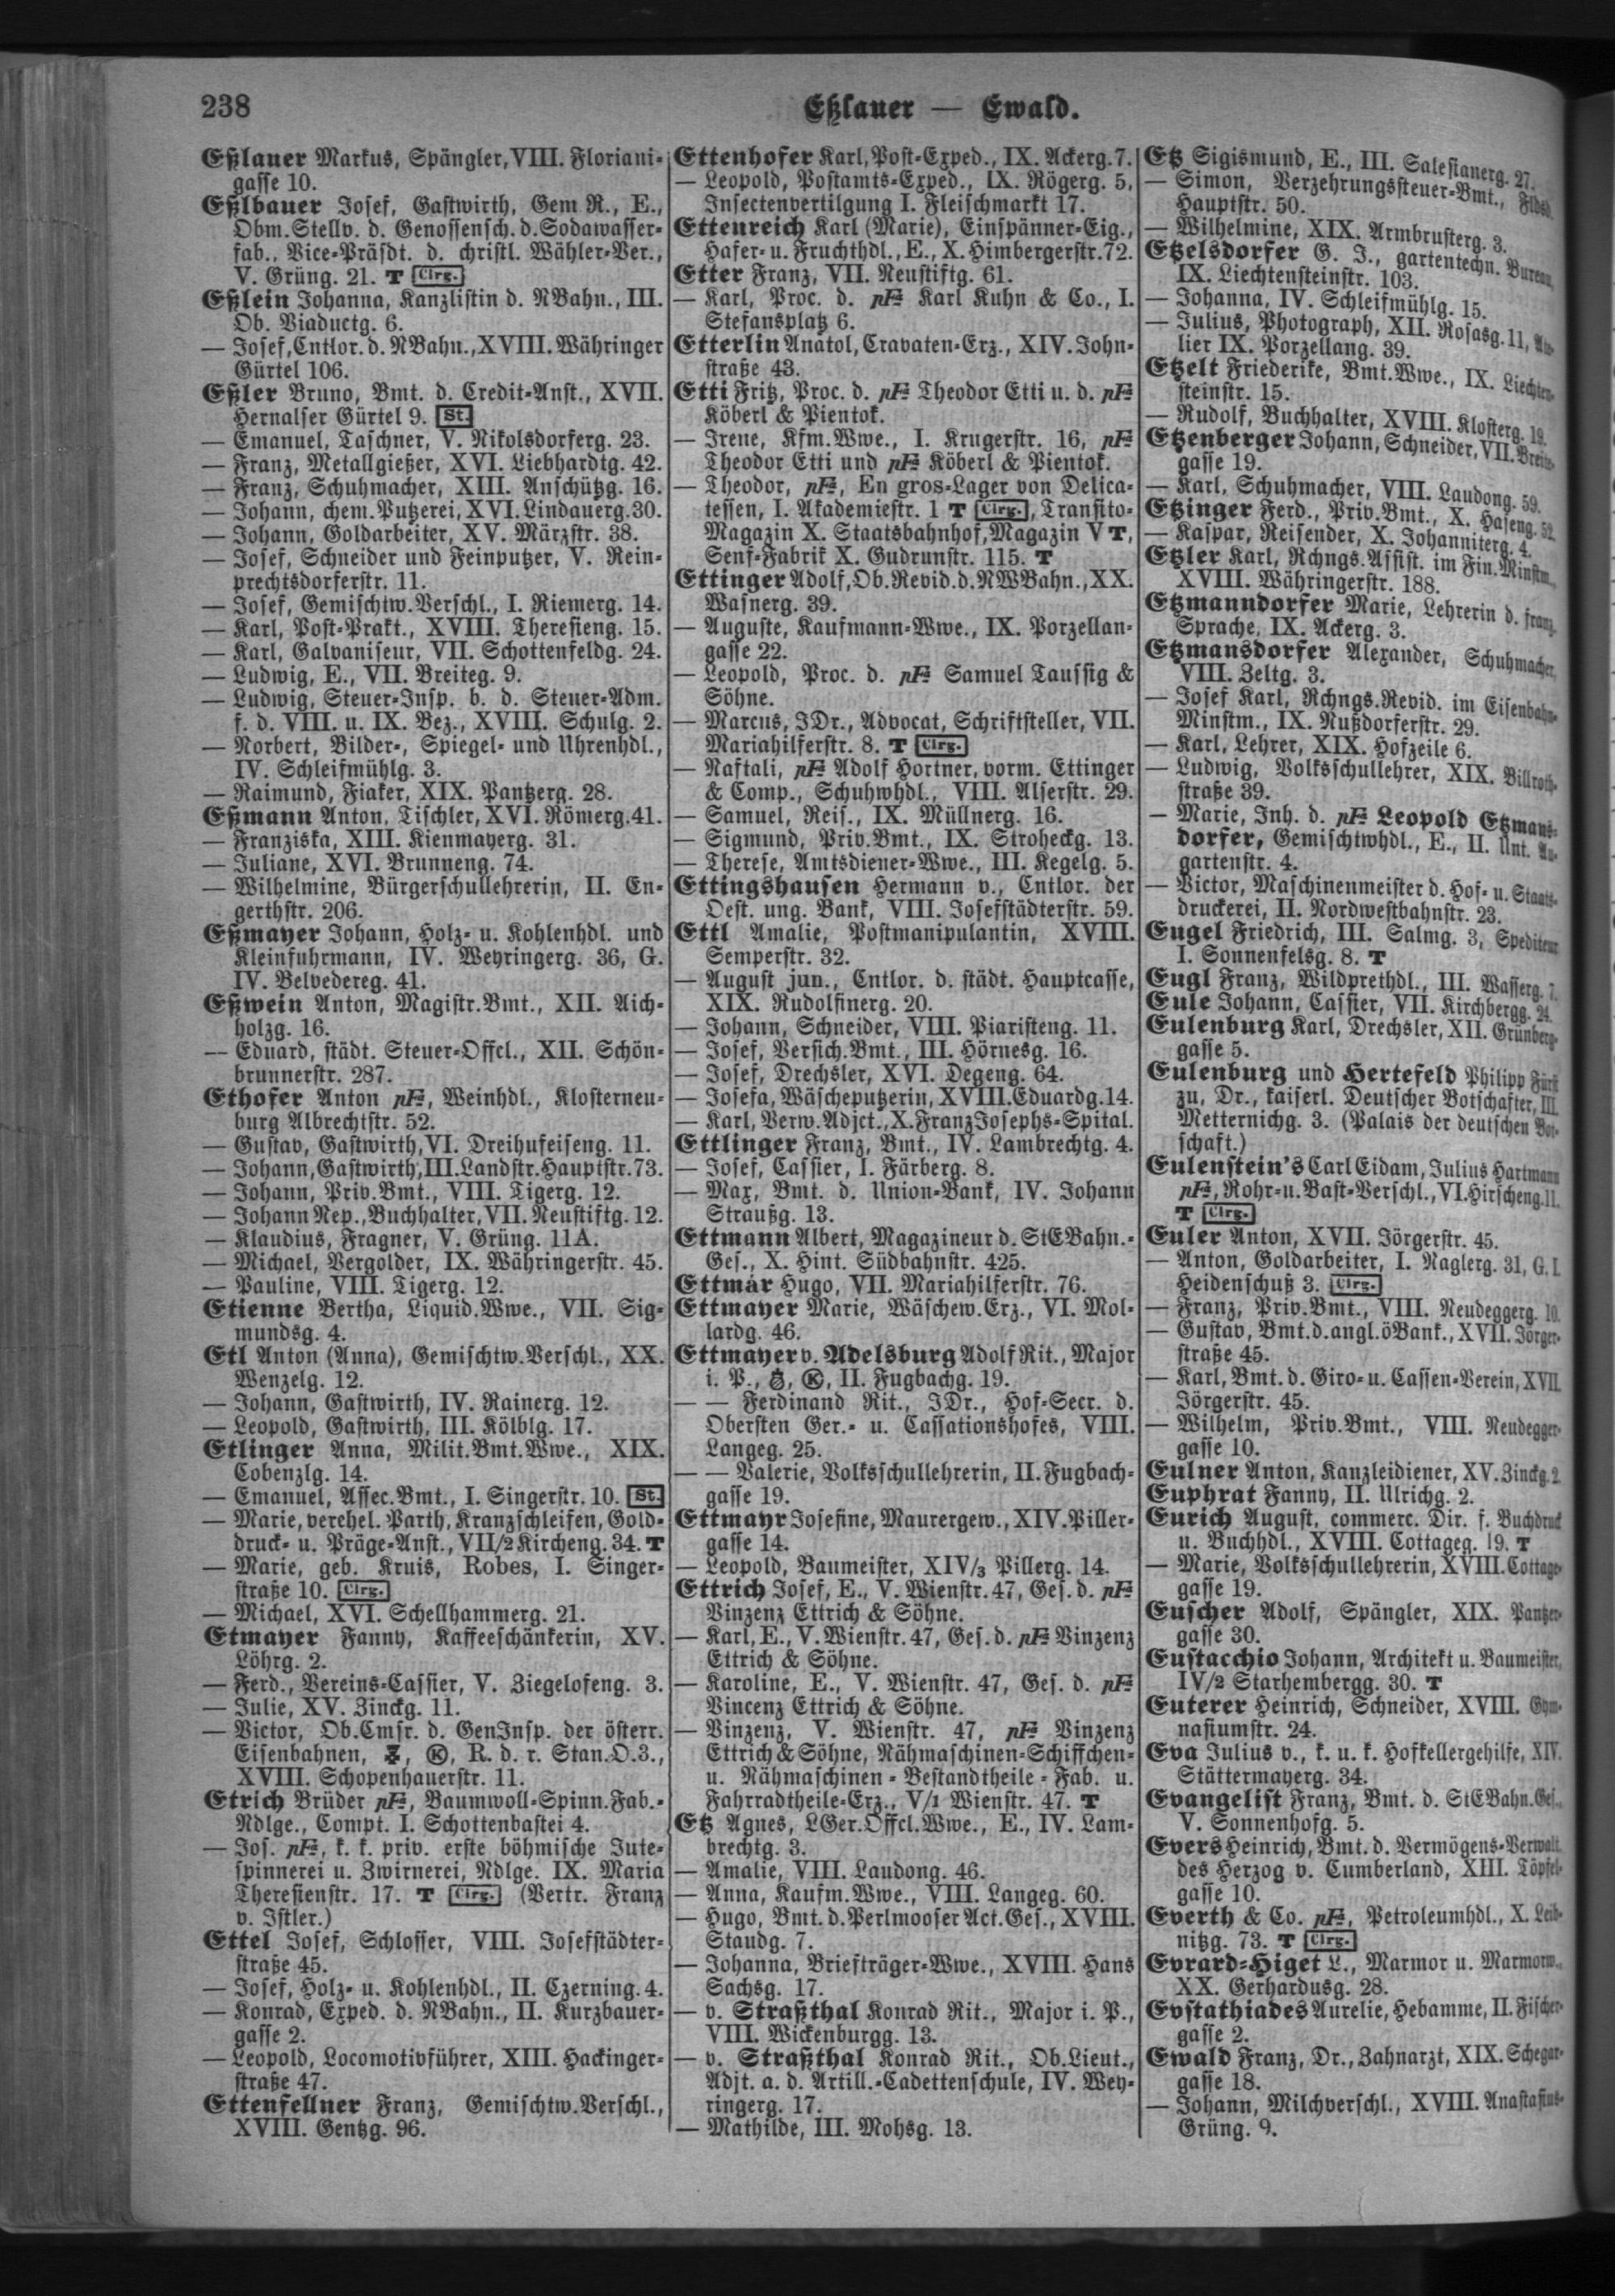 238
Eßlauer — Ewald.
Eßlauer Markus, Spängler, VIII. Floriani-
gasse 10.
Eßlbauer Josef, Gastwirth, Gem R., E.,
Obm.Stellv. d. Genossensch. d. Sodawasser-
fab., Vice-Präsdt. d. christl. Wähler-Ver.,
V. Grüng. 21. T Clrg.
Eßlein Johanna, Kanzlistin d. NBahn., III.
Ob. Viaductg. 6.
— Josef, Cntlor. d. NBahn., XVIII. Währinger
Gürtel 106.
Eßler Bruno, Bmt. d. Credit-Anst., XVII.
Hernalser Gürtel 9. St.
— Emanuel, Taschner, V. Nikolsdorferg. 23.
— Franz, Metallgießer, XVI. Liebhardtg. 42.
— Franz, Schuhmacher, XIII. Anschützg. 16.
— Johann, chem. Putzerei, XVI. Lindauerg. 30.
— Johann, Goldarbeiter, XV. Märzstr. 38.
— Josef, Schneider und Feinputzer, V. Rein-
prechtsdorferstr. 11.
— Josef, Gemischtw.Verschl., I. Riemerg. 14.
— Karl, Post-Prakt., XVIII. Theresieng. 15.
— Karl, Galvaniseur, VII. Schottenfeldg. 24.
— Ludwig, E., VII. Breiteg. 9.
— Ludwig, Steuer-Insp. b. d. Steuer-Adm.
f. d. VIII. u. IX. Bez., XVIII. Schulg. 2.
— Norbert, Bilder-, Spiegel- und Uhrenhdl.,
IV. Schleifmühlg. 3.
— Raimund, Fiaker, XIX. Pantzerg. 28.
Eßmann Anton, Tischler, XVI. Römerg. 41.
— Franziska, XIII. Kienmayerg. 31.
— Juliane, XVI. Brunneng. 74.
— Wilhelmine, Bürgerschullehrerin, II. En-
gerthstr. 206.
Eßmayer Johann, Holz- u. Kohlenhdl. und
Kleinfuhrmann, IV. Weyringerg. 36, G.
IV. Belvedereg. 41.
Eßwein Anton, Magistr.Bmt., XII. Aich-
holzg. 16.
— Eduard, städt. Steuer-Offcl., XII. Schön-
brunnerstr. 287.
Ethofer Anton pF, Weinhdl., Klosterneu-
burg Albrechtstr. 52.
— Gustav, Gastwirth, VI. Dreihufeiseng. 11.
— Johann, Gastwirth, III. Landstr. Hauptstr. 73.
— Johann, Priv.Bmt., VIII. Tigerg. 12.
— Johann Nep., Buchhalter, VII. Neustiftg. 12.
— Klaudius, Fragner, V. Grüng. 11A.
— Michael, Vergolder, IX. Währingerstr. 45.
— Pauline, VIII. Tigerg. 12.
Etienne Bertha, Liquid.Wwe., VII. Sig-
mundsg. 4.
Etl Anton (Anna), Gemischtw.Verschl., XX.
Wenzelg. 12.
— Johann, Gastwirth, IV. Rainerg. 12.
— Leopold, Gastwirth, III. Kölblg. 17.
Etlinger Anna, Milit.Bmt.Wwe., XIX.
Cobenzlg. 14.
— Emanuel, Assec.Bmt., I. Singerstr. 10. St.
— Marie, verehel. Parth, Kranzschleifen, Gold-
druck- u. Präge-Anst., VII/2 Kircheng. 34. T
— Marie, geb. Kruis, Robes, I. Singer-
straße 10. Clrg.
— Michael, XVI. Schellhammerg. 21.
Etmayer Fanny, Kaffeeschänkerin, XV.
Löhrg. 2.
— Ferd., Vereins-Cassier, V. Ziegelofeng. 3.
— Julie, XV. Zinckg. 11.
— Victor, Ob.Cmsr. d. GenInsp. der österr.
Eisenbahnen, K, R. d. r. Stan.O.3.,
XVIII. Schopenhauerstr. 11.
Etrich Brüder pF, Baumwoll-Spinn.Fab.-
Ndlge., Compt. I. Schottenbastei 4.
— Jos. pF, k. k. priv. erste böhmische Jute-
spinnerei u. Zwirnerei, Ndlge. IX. Maria
Theresienstr. 17. T Clrg. (Vertr. Franz
v. Istler.)
Ettel Josef, Schlosser, VIII. Josefstädter-
straße 45.
— Josef, Holz- u. Kohlenhdl., II. Czerning. 4.
— Konrad, Exped. d. NBahn., II. Kurzbauer-
gasse 2.
— Leopold, Locomotivführer, XIII. Hackinger-
straße 47.
Ettenfellner Franz, Gemischtw.Verschl.,
XVIII. Gentzg. 96.
Ettenhofer Karl, Post-Exped., IX. Ackerg. 7.
— Leopold, Postamts-Exped., IX. Rögerg. 5,
Insectenvertilgung I. Fleischmarkt 17.
Ettenreich Karl (Marie), Einspänner-Eig.,
Hafer- u. Fruchthdl., E., X. Himbergerstr. 72.
Etter Franz, VII. Neustiftg. 61.
— Karl, Proc. d. pF Karl Kuhn & Co., I.
Stefansplatz 6.
Etterlin Anatol, Cravaten-Erz., XIV. John-
straße 43.
Etti Fritz, Proc. d. pF Theodor Etti u. d. pF
Köberl & Pientok.
— Irene, Kfm.Wwe., I. Krugerstr. 16, pF
Theodor Etti und pF Köberl & Pientok.
— Theodor, pF, En gros-Lager von Delica-
tessen, I. Akademiestr. 1 T Clrg., Transito-
Magazin X. Staatsbahnhof, Magazin V T,
Senf-Fabrik X. Gudrunstr. 115. T
Ettinger Adolf, Ob.Revid. d. NWBahn., XX.
Wasnerg. 39.
— Auguste, Kaufmann-Wwe., IX. Porzellan-
gasse 22.
— Leopold, Proc. d. pF Samuel Taussig &
Söhne.
— Marcus, JDr., Advocat, Schriftsteller, VII.
Mariahilferstr. 8. T Clrg.
— Naftali, pF Adolf Hortner, vorm. Ettinger
& Comp., Schuhwhdl., VIII. Alserstr. 29.
— Samuel, Reis., IX. Müllnerg. 16.
— Sigmund, Priv.Bmt., IX. Stroheckg. 13.
— Therese, Amtsdiener-Wwe., III. Kegelg. 5.
Ettingshausen Hermann v., Cntlor. der
Oest. ung. Bank, VIII. Josefstädterstr. 59.
Ettl Amalie, Postmanipulantin, XVIII.
Semperstr. 32.
— August jun., Cntlor. d. städt. Hauptcasse,
XIX. Rudolfinerg. 20.
— Johann, Schneider, VIII. Piaristeng. 11.
— Josef, Versich.Bmt., III. Hörnesg. 16.
— Josef, Drechsler, XVI. Degeng. 64.
— Josefa, Wäscheputzerin, XVIII. Eduardg. 14.
— Karl, Verw.Adjct., X. Franz Josephs-Spital.
Ettlinger Franz, Bmt., IV. Lambrechtg. 4.
— Josef, Cassier, I. Färberg. 8.
— Max, Bmt. d. Union-Bank, IV. Johann
Straußg. 13.
Ettmann Albert, Magazineur d. StEBahn.-
Ges., X. Hint. Südbahnstr. 425.
Ettmár Hugo, VII. Mariahilferstr. 76.
Ettmayer Marie, Wäschew.Erz., VI. Mol-
lardg. 46.
Ettmayer v. Adelsburg Adolf Rit., Major
i. P., K, II. Fugbachg. 19.
— — Ferdinand Rit., JDr., Hof-Secr. d.
Obersten Ger.- u. Cassationshofes, VIII.
Langeg. 25.
— — Valerie, Volksschullehrerin, II. Fugbach-
gasse 19.
Ettmayr Josefine, Maurergew., XIV. Piller-
gasse 14.
— Leopold, Baumeister, XIV/3 Pillerg. 14.
Ettrich Josef, E., V. Wienstr. 47, Ges. d. pF
Vinzenz Ettrich & Söhne.
— Karl, E., V. Wienstr. 47, Ges. d. pF Vinzenz
Ettrich & Söhne.
— Karoline, E., V. Wienstr. 47, Ges. d. pF
Vincenz Ettrich & Söhne.
— Vinzenz, V. Wienstr. 47, pF Vinzenz
Ettrich & Söhne, Nähmaschinen-Schiffchen-
u. Nähmaschinen-Bestandtheile-Fab. u.
Fahrradtheile-Erz., V/1 Wienstr. 47. T
Etz Agnes, LGer.Offcl.Wwe., E., IV. Lam-
brechtg. 3.
— Amalie, VIII. Laudong. 46.
— Anna, Kaufm.Wwe., VIII. Langeg. 60.
— Hugo, Bmt. d. Perlmooser Act.Ges., XVIII.
Staudg. 7.
— Johanna, Briefträger-Wwe., XVIII. Hans
Sachsg. 17.
— v. Straßthal Konrad Rit., Major i. P.,
VIII. Wickenburgg. 13.
— v. Straßthal Konrad Rit., Ob.Lieut.,
Adjt. a. d. Artill.-Cadettenschule, IV. Wey-
ringerg. 17.
— Mathilde, III. Mohsg. 13.
Etz Sigismund, E., III. Salesianerg. 27.
— Simon, Verzehrungssteuer-Bmt., Fldsd.
Hauptstr. 50.
— Wilhelmine, XIX. Armbrusterg. 3.
Etzelsdorfer G. J., gartentechn. Bureau,
IX. Liechtensteinstr. 103.
— Johanna, IV. Schleifmühlg. 15.
— Julius, Photograph, XII. Rosasg. 11, Ate-
lier IX. Porzellang. 39.
Etzelt Friederike, Bmt.Wwe., IX. Liechten-
steinstr. 15.
— Rudolf, Buchhalter, XVIII. Klosterg. 19.
Etzenberger Johann, Schneider, VII. Breite-
gasse 19.
— Karl, Schuhmacher, VIII. Laudong. 59.
Etzinger Ferd., Priv.Bmt., X. Haseng. 52.
— Kaspar, Reisender, X. Johanniterg. 4.
Etzler Karl, Rchngs.Assist. im Fin.Minstm.,
XVIII. Währingerstr. 188.
Etzmanndorfer Marie, Lehrerin d. franz.
Sprache, IX. Ackerg. 3.
Etzmansdorfer Alexander, Schuhmacher,
VIII. Zeltg. 3.
— Josef Karl, Rchngs.Revid. im Eisenbahn-
Minstm., IX. Nußdorferstr. 29.
— Karl, Lehrer, XIX. Hofzeile 6.
— Ludwig, Volksschullehrer, XIX. Billroth-
straße 39.
— Marie, Inh. d. pF Leopold Etzmans-
dorfer, Gemischtwhdl., E., II. Unt. Au-
gartenstr. 4.
— Victor, Maschinenmeister d. Hof- u. Staats-
druckerei, II. Nordwestbahnstr. 23.
Eugel Friedrich, III. Salmg. 3, Spediteur
I. Sonnenfelsg. 8. T
Eugl Franz, Wildprethdl., III. Wasserg. 7.
Eule Johann, Cassier, VII. Kirchbergg. 24.
Eulenburg Karl, Drechsler, XII. Grünberg-
gasse 5.
Eulenburg und Hertefeld Philipp Fürst
zu, Dr., kaiserl. Deutscher Botschafter, III.
Metternichg. 3. (Palais der deutschen Bot-
schaft.)
Eulenstein's Carl Eidam, Julius Hartmann
pF, Rohr- u. Bast-Verschl., VI. Hirscheng. 11.
T Clrg.
Euler Anton, XVII. Jörgerstr. 45.
— Anton, Goldarbeiter, I. Naglerg. 31, G. I.
Heidenschuß 3. Clrg.
— Franz, Priv.Bmt., VIII. Neudeggerg. 10.
— Gustav, Bmt. d. angl. öBank., XVII. Jörger-
straße 45.
— Karl, Bmt. d. Giro- u. Cassen-Verein, XVII.
Jörgerstr. 45.
— Wilhelm, Priv.Bmt., VIII. Neudegger-
gasse 10.
Eulner Anton, Kanzleidiener, XV. Zinckg. 2.
Euphrat Fanny, II. Ulrichg. 2.
Eurich August, commerc. Dir. f. Buchdruck
u. Buchhdl., XVIII. Cottageg. 19. T
— Marie, Volksschullehrerin, XVIII. Cottage-
gasse 19.
Euscher Adolf, Spängler, XIX. Pantzer-
gasse 30.
Eustacchio Johann, Architekt u. Baumeister,
IV/2 Starhembergg. 30. T
Euterer Heinrich, Schneider, XVIII. Gym-
nasiumstr. 24.
Eva Julius v., k. u. k. Hofkellergehilfe, XIV.
Stättermayerg. 34.
Evangelist Franz, Bmt. d. StEBahn.Ges.,
V. Sonnenhofg. 5.
Evers Heinrich, Bmt. d. Vermögens-Verwalt.
des Herzog v. Cumberland, XIII. Töpfel-
gasse 10.
Everth & Co. pF, Petroleumhdl., X. Leib-
nitzg. 73. T Clrg.
Evrard-Higet L., Marmor u. Marmorw.,
XX. Gerhardusg. 28.
Evstathiades Aurelie, Hebamme, II. Fischer-
gasse 2.
Ewald Franz, Dr., Zahnarzt, XIX. Schegar-
gasse 18.
— Johann, Milchverschl., XVIII. Anastasius-
Grüng. 9.